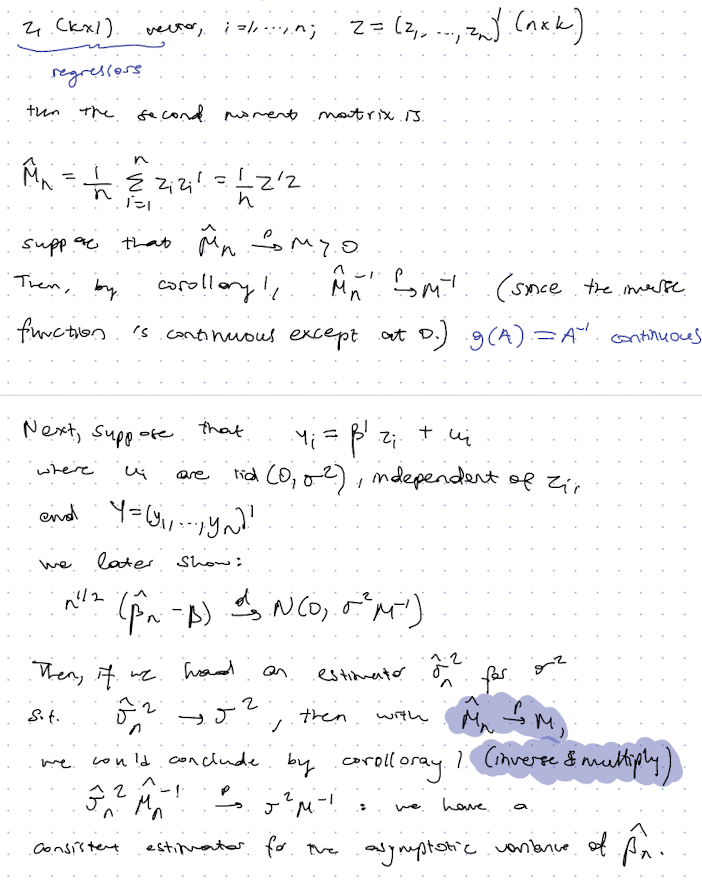 z_i (k×1) vector, i=1,...,n; Z = (z_1, ..., z_n)' (n×k)
regressors
then the second moment matrix is
M̂_n = 1/n Σ_{i=1}^{n} z_i z_i' = 1/n Z'Z
suppose that M̂_n →^p M > 0
Then, by corollary 1, M̂_n^{-1} →^p M^{-1} (since the inverse
function is continuous except at 0.) g(A) = A^{-1} continuous
Next, suppose that y_i = β' z_i + u_i
where u_i are iid (0, σ^2), independent of z_i,
and Y = (y_1, ..., y_n)'
we later show:
n^{1/2} (β̂_n - β) →^d N(0, σ^2 M^{-1})
Then, if we had an estimator σ̂_n^2 for σ^2
s.t. σ̂_n^2 → σ^2, then with M̂_n →^p M,
we could conclude by corolloray 1 (inverse & multiply)
σ̂_n^2 M̂_n^{-1} →^p σ^2 M^{-1} : we have a
consistent estimator for the asymptotic variance of β̂_n.